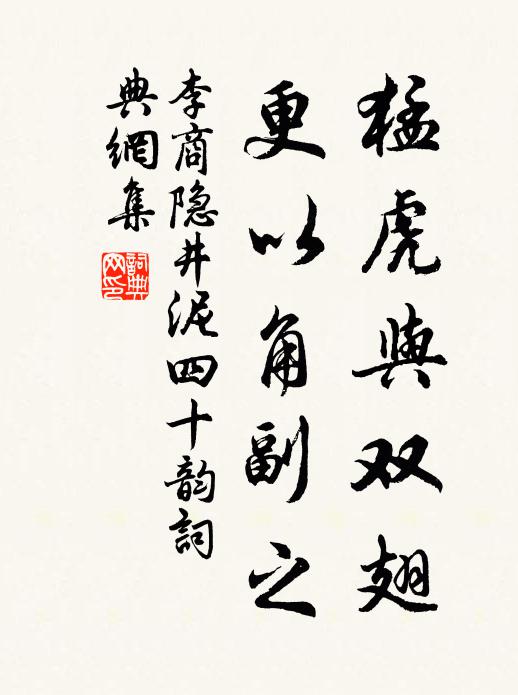 猛虎與双翅
更以角副之
李商隐井泥四十韵詞
典網集
詞典
网印